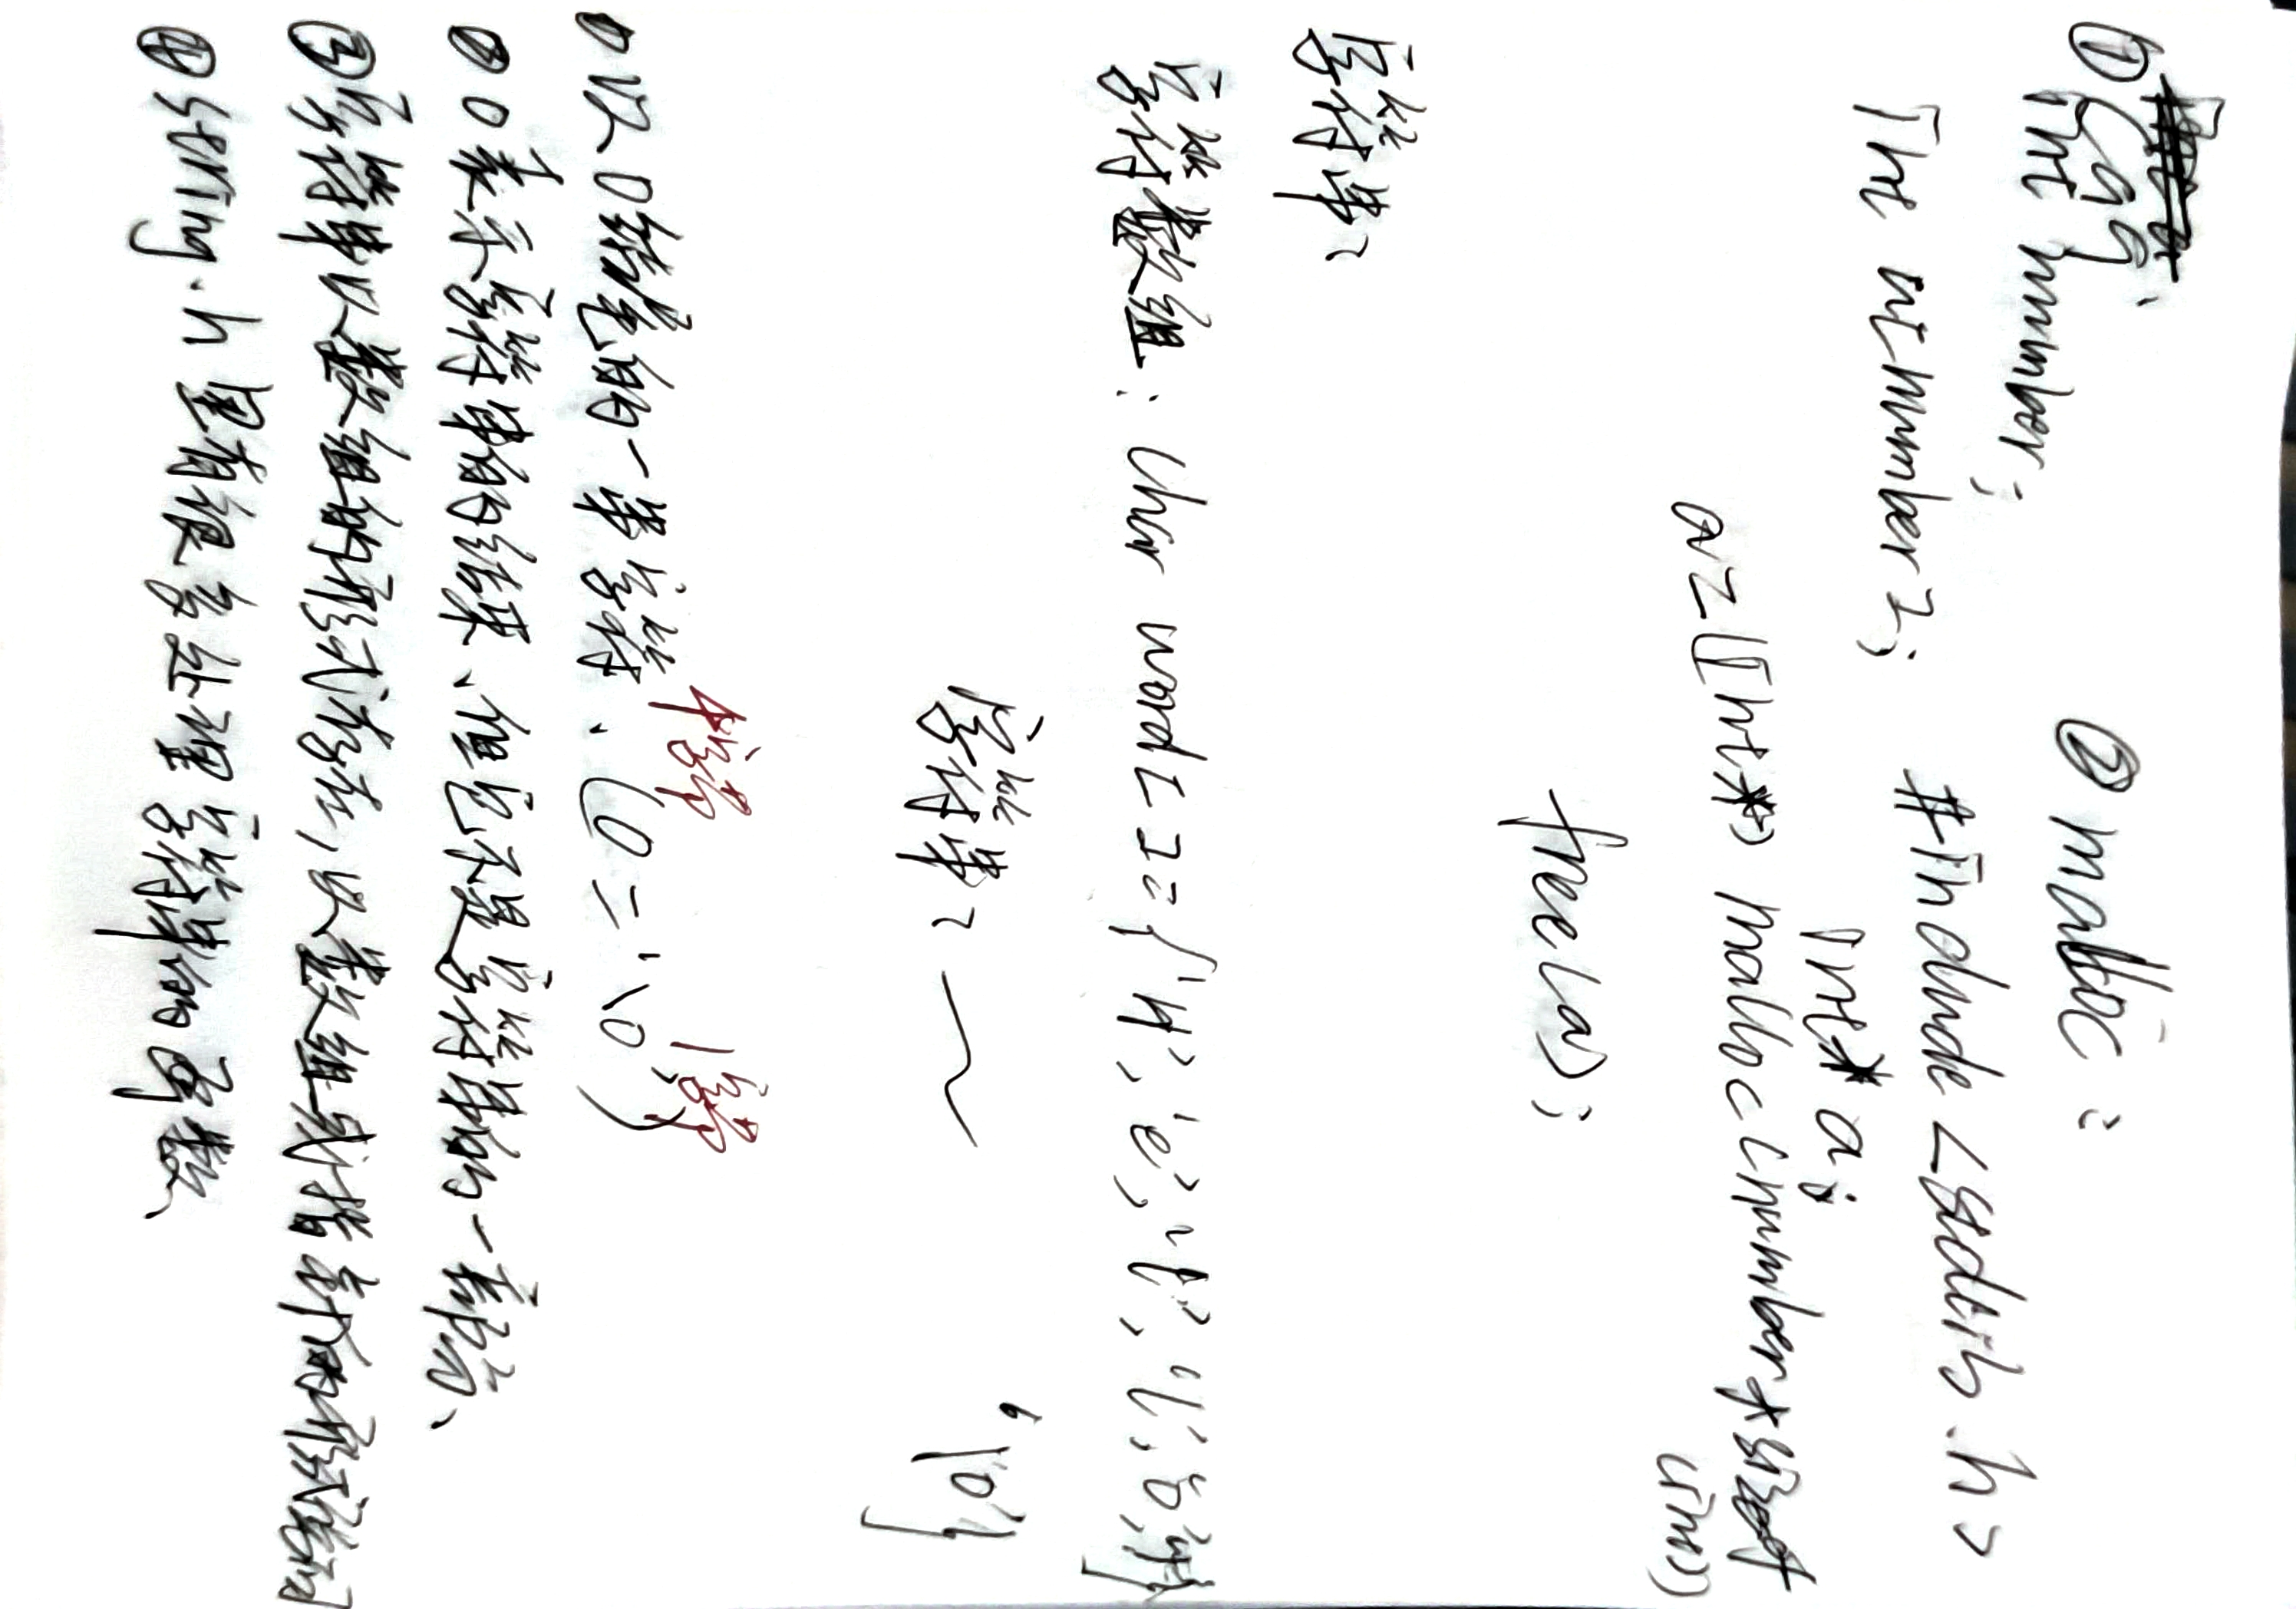 ① C99: ② malloc:
int number;
int number2; #include <stdlib.h>
int* a;
a=(int*) malloc(number*sizeof
(int))
free(a);
字符串:
字符数组: Char word[]={'H','e','l','l','o','!'}
字符串: ～ ,
'\0'}
4字节 1字节
① 以0结尾的一串字符.(0='\0')
② 0表示字符串的结束、但它不是字符串的一部分、
③ 字符串以数组的形式存在,以数组或指针的形式访问
④ string.h里有很多处理字符串的函数、